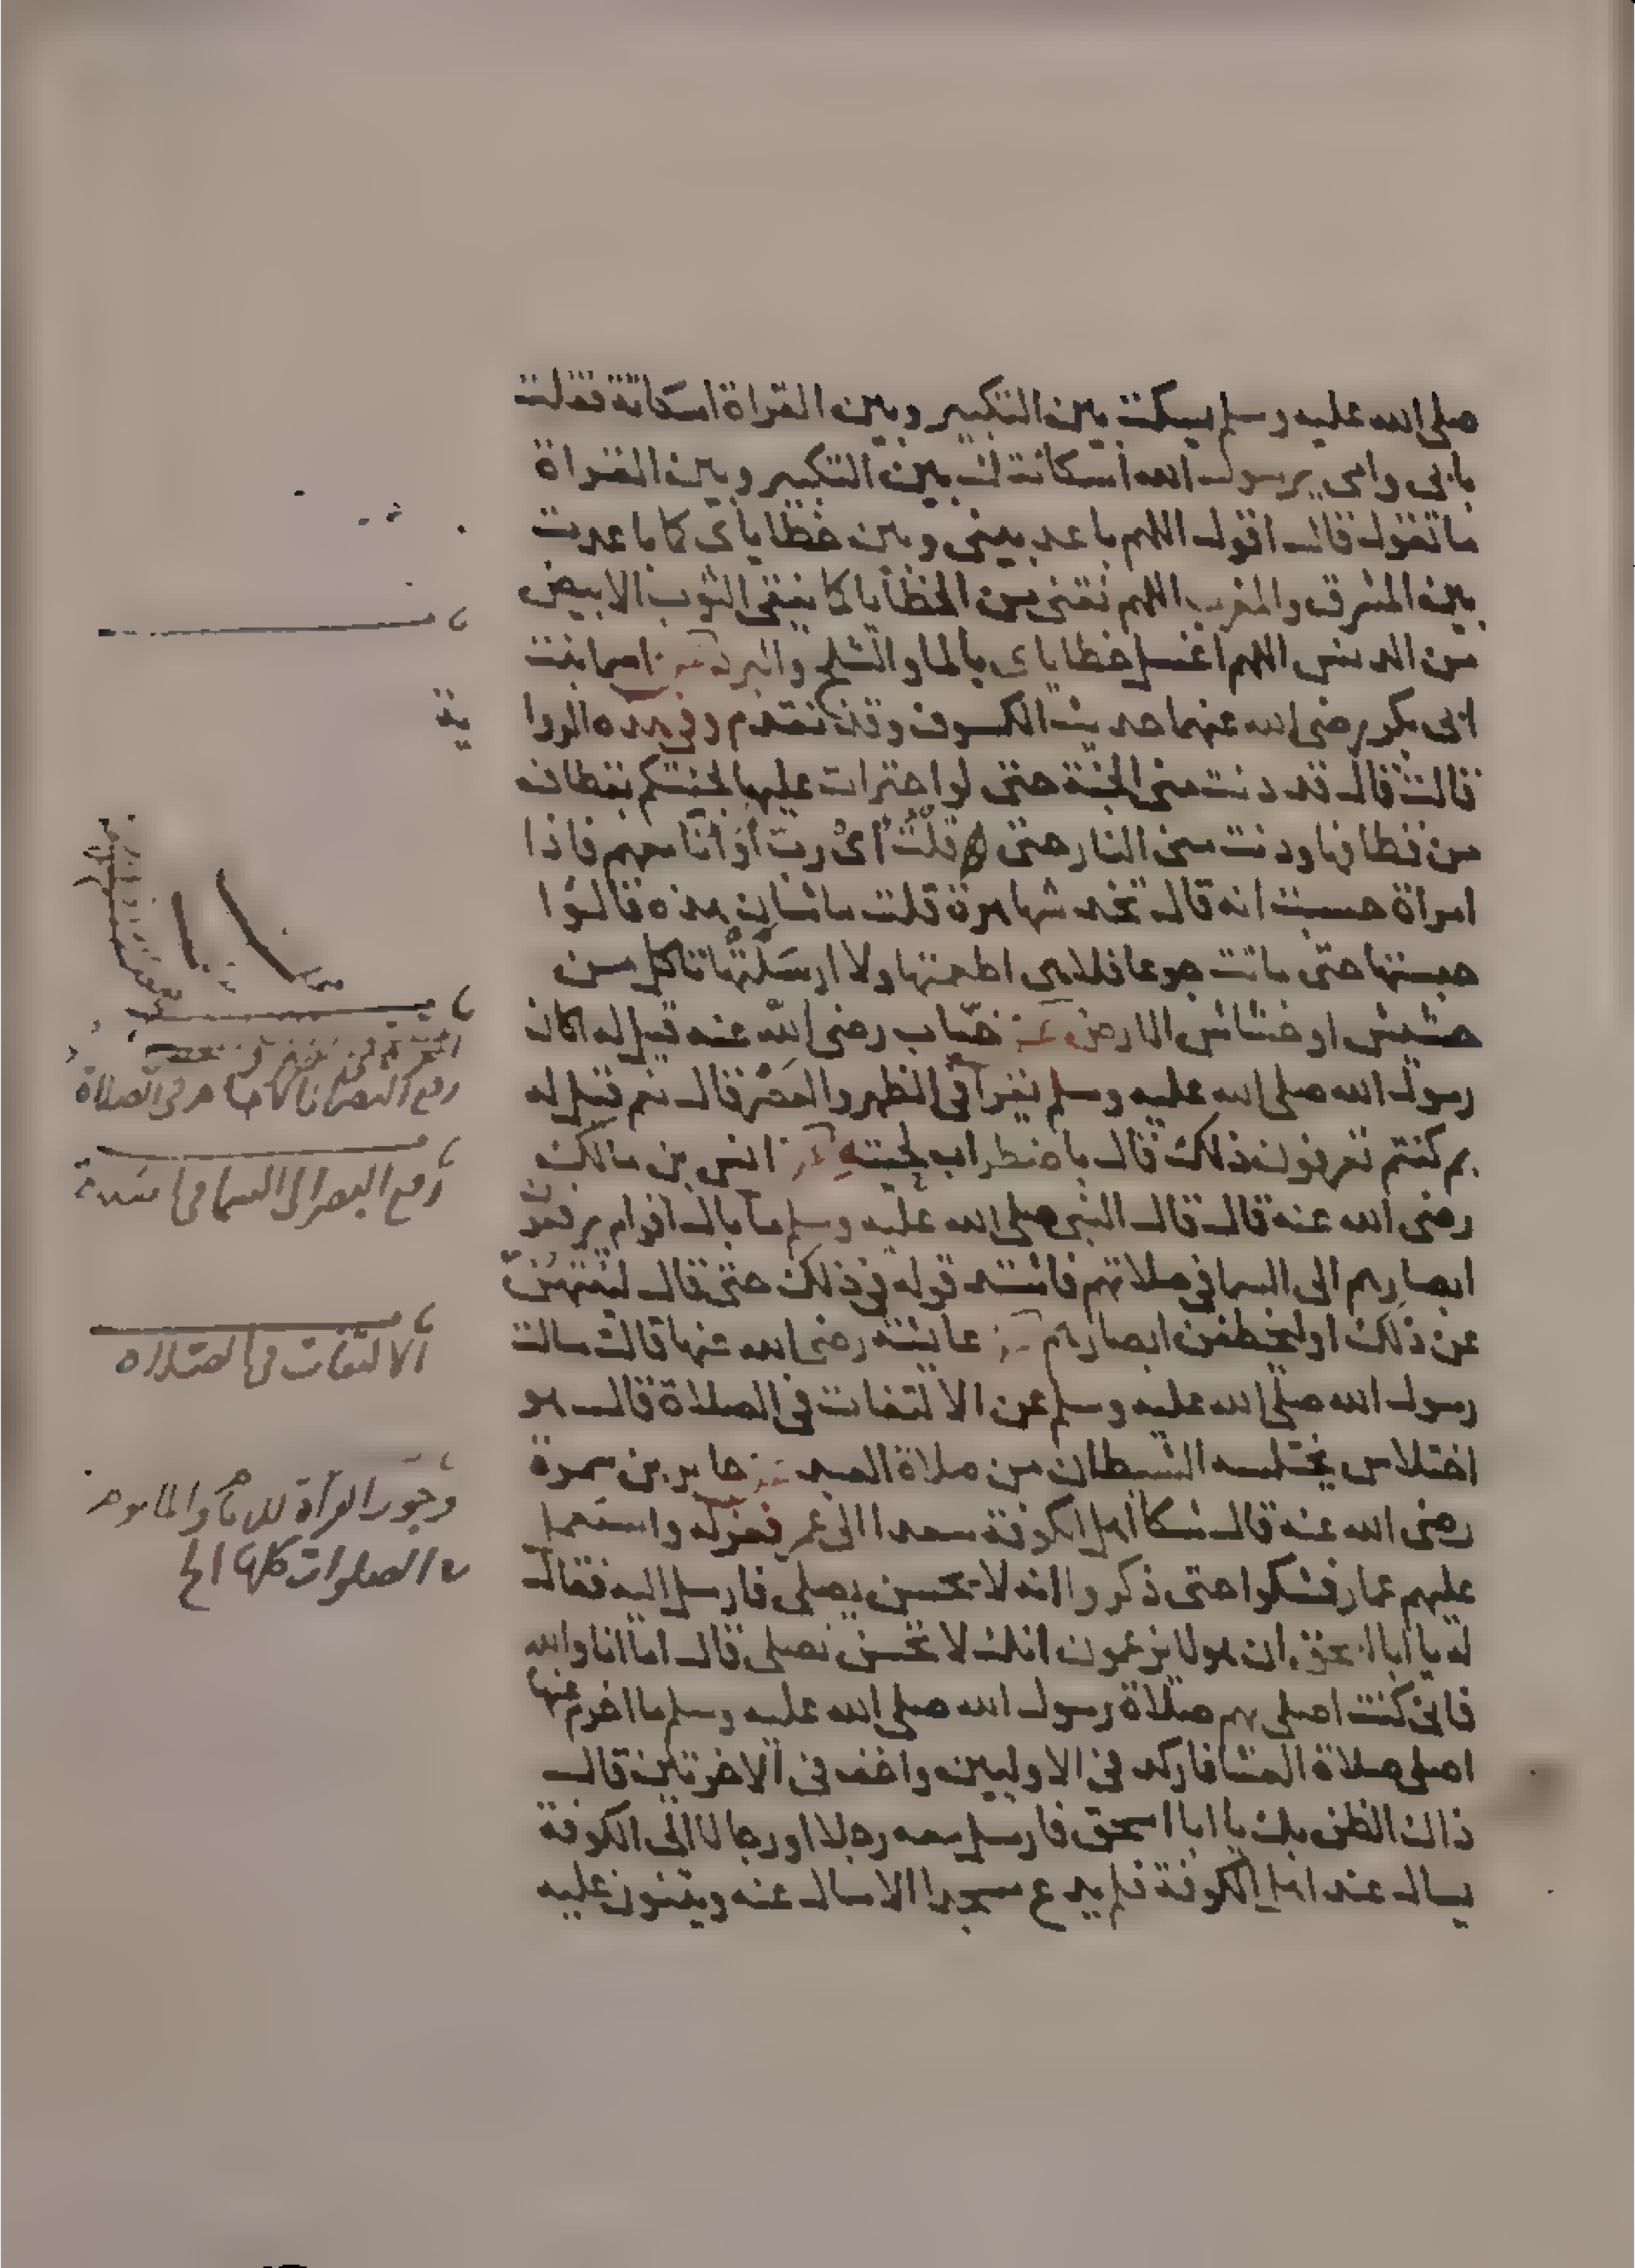 صلى الله عليه وسلم يسكت بين التكبير وبين القراة اسكاتة فقلت
بابى وامى يرسول الله اسكاتتك بين التكبير وبين القراة
ما تقول قال اقول اللهم باعد بينى وبين خطاياى كما باعدت
بين المشرق والمغرب اللهم نقنى من الخطايا كما ينقى الثوب الابيض
من الدنس اللهم اغسل خطاياى بالما والثلج والبرد عن اسما بنت
ابى بكر رضى الله عنهما حديث الكسوف وقد تقدم وفى هذه الروا
ية
قالت قال قد دنت منى الجنة حتى لو اجترات عليها لجيتكم بقطاف
من قطافها ودنت منى النار حتى قلت أى رب أو أنا معهم فاذا
امراة حسبت انه قال تخدشها هرة قلت ما شان هذه قالوا
حبستها حتى ماتت جوعا فلا هى اطعمتها ولا ارسلتها تاكل من
خشيش او خشاش الارض عن خباب رضى الله عنه قيل له اكان
رسول الله صلى الله عليه وسلم يقرأ فى الظهر والعصر قال نعم قيل له
بم كنتم تعرفون ذلك قال باضطراب لحيته عن انس بن مالك
رضى الله عنه قال قال النبى صلى الله عليه وسلم ما بال اقوام يرفعون
ابصارهم الى السما فى صلاتهم فاشتد قوله فى ذلك حتى قال لينتهن
عن ذلك او لتخطفن ابصارهم عن عايشة رضى الله عنها قالت سالت
رسول الله صلى الله عليه وسلم عن الالتفات فى الصلاة قال هو
اختلاس يختلسه الشيطان من صلاة العبد عن جابر بن سمرة
رضى الله عنه قال شكا اهل الكوفة سعدا الى عمر فعزله واستعمل
عليهم عمار فشكوا حتى ذكروا انه لا يحسن يصلى فارسل اليه فقال
له يا أبا اسحق ان هولا يزعمون انك لا تحسن تصلى قال اما انا والله
فانى كنت اصلى بهم صلاة رسول الله صلى الله عليه وسلم ما اخرم عنها
اصلى صلاة العشا فاركد فى الاوليين واخف فى الاخرتين قال
ذاك الظن بك يا ابا اسحق فارسل معه رجلا او رجالا الى الكوفة
يسال عنه اهل الكوفة فلم يدع مسجدا الا سال عنه ويثنون عليه
رفع البصر الى الامام فى الصلاة
رفع البصر الى السما فى
الالتفات فى الصلاة
وجوب القرآة للامام والماموم
فى الصلوات كلها الخ